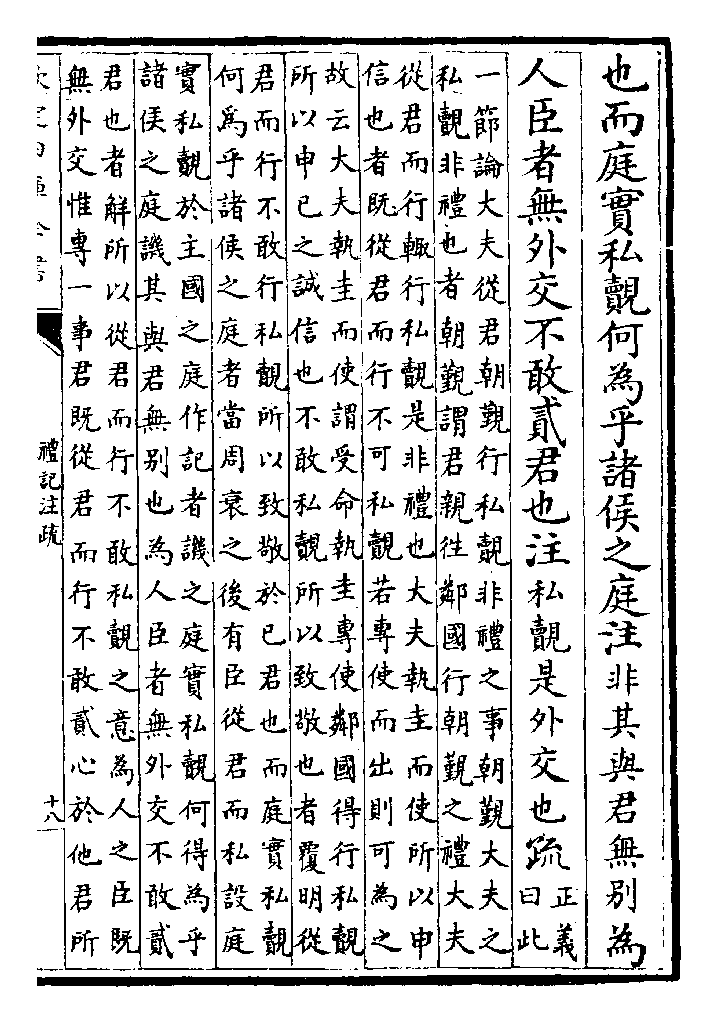 也而庭實私覿何為乎諸侯之庭注非其與君無別為
人臣者無外交不敢貳君也注私覿是外交也疏正義
曰此
一節論大夫從君朝覲行私覿非禮之事朝覲大夫之
私覿非禮也者朝覲謂君親徃鄰國行朝覲之禮大夫
從君而行輙行私覿是非禮也大夫執圭而使所以申
信也者既從君而行不可私覿若專使而出則可為之
故云大夫執圭而使謂受命執圭專使鄰國得行私覿
所以申已之誠信也不敢私覿所以致敬也者覆明從
君而行不敢行私覿所以致敬於已君也而庭實私覿
何為乎諸侯之庭者當周衰之後有臣從君而私設庭
實私覿於主國之庭作記者譏之庭實私覿何得為乎
諸侯之庭譏其與君無別也為人臣者無外交不敢貳
君也者解所以從君而行不敢私覿之意為人之臣既
無外交惟專一事君既從君而行不敢貳心於他君所
禮記注疏
十八